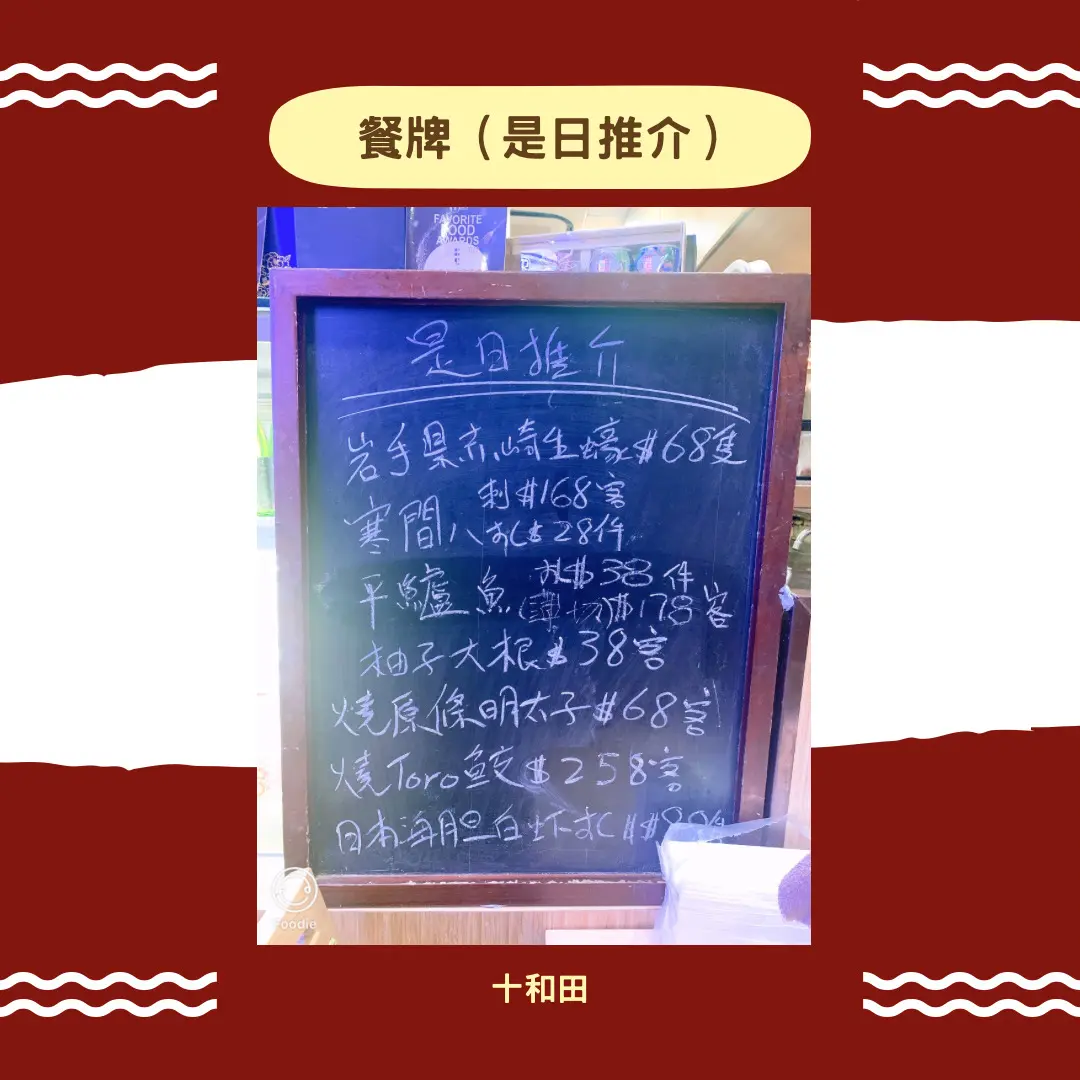 餐牌（是日推介）
FAVORITE
FOOD
AWARDS
是日推介
岩手県赤崎生蠔$68隻
寒間八 刺$168客
扎$28件
平鱸魚 扎$38件
(薄切)$178客
柚子大根$38客
燒原條明太子$68客
燒Toro鮫$258客
日本海胆白虾扎
Foodie
十和田